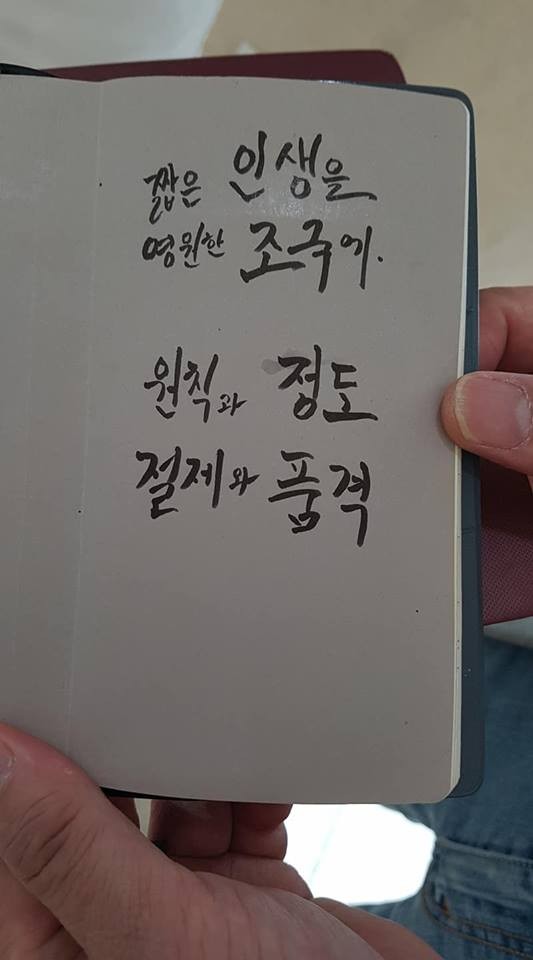 짧은 인생을
영원한 조국에.
원칙과 정도
절제와 품격